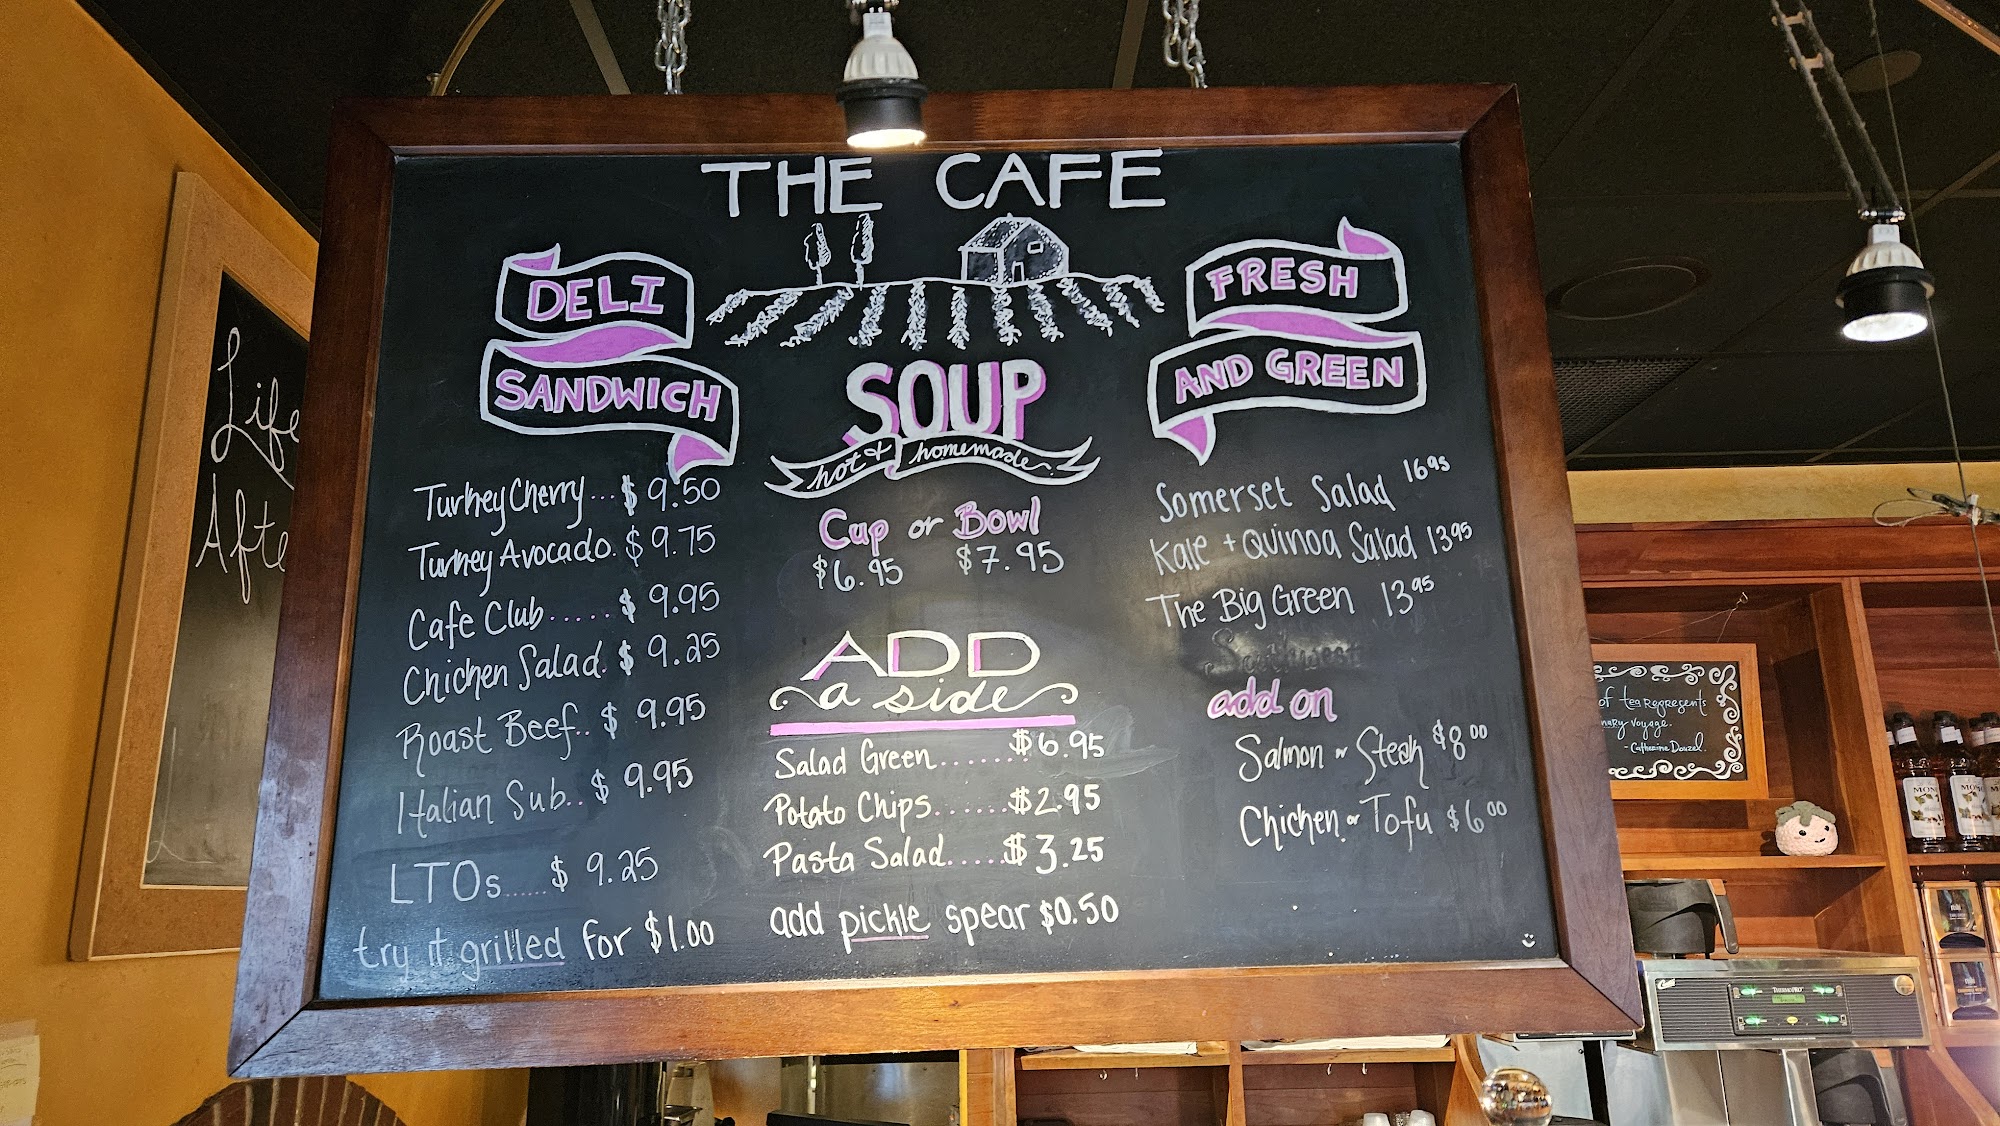 THE CAFE
DELI
SANDWICH
Turkey Cherry... $ 9.50
Turkey Avocado. $ 9.75
Cafe Club...... $ 9.95
Chicken Salad. $ 9.25
Roast Beef.. $ 9.95
Italian Sub.. $ 9.95
LTOs..... $ 9.25
try it grilled for $1.00
SOUP
hot & homemade
Cup or Bowl
$6.95 $7.95
ADD
a side
Salad Green....... $6.95
Potato Chips....... $2.95
Pasta Salad..... $3.25
add pickle spear $0.50
FRESH
AND GREEN
Somerset Salad 16 95
Kale + Quinoa Salad 13 95
The Big Green 13 95
Southwest
add on
Salmon or Steak $8 00
Chicken or Tofu $6 00
Life
Afte
of tea represents
nary voyage.
- Catherine Douzel
MON
MON
M
THERMOPRO